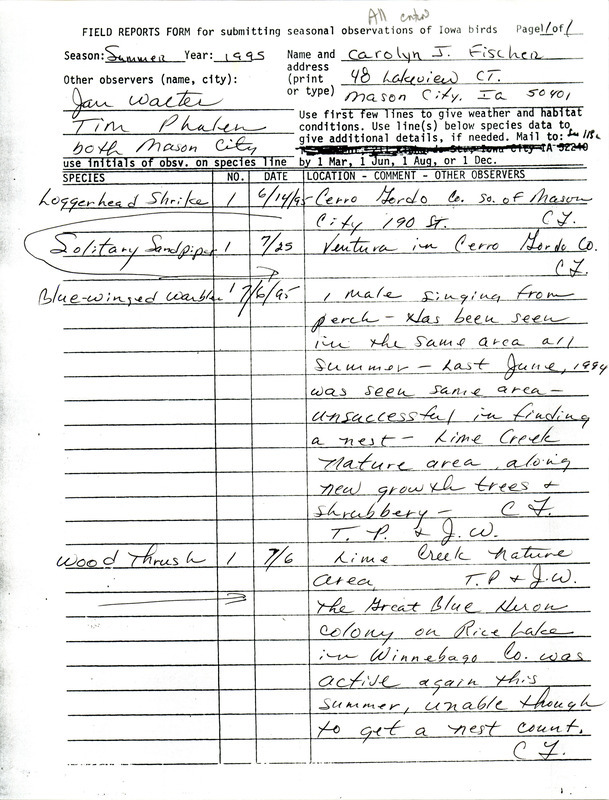 All entered
FIELD REPORTS FORM for submitting seasonal observations of Iowa birds Page 1 of 1
Season: Summer Year: 1995
Name and address (print or type) Carolyn J. Fischer
48 Lakeview CT.
Mason City, Ia 50401
Other observers (name, city):
Jan Walter
Tim Phalen
both Mason City
use initials of obsv. on species line
Use first few lines to give weather and habitat
conditions. Use line(s) below species data to
give additional details, if needed. Mail to:
by 1 Mar, 1 Jun, 1 Aug, or 1 Dec.
SPECIES NO. DATE LOCATION - COMMENT - OTHER OBSERVERS
Loggerhead Shrike 1 6/14/95 Cerro Gordo Co. so. of Mason
City 190 St. C F.
Solitary Sandpiper 1 7/25 Ventura in Cerro Gordo Co.
C F.
Blue-winged Warbler 1 7/6/95 1 male singing from
perch - Has been seen
in the same area all
summer - Last June, 1994
was seen same area -
unsuccessful in finding
a nest - Lime Creek
Nature area, along
new growth trees +
shrubbery - C F.
T. P. & J. W.
Wood Thrush 1 7/6 Lime Creek Nature
area, T. P + J. W.
The Great Blue Heron
colony on Rice Lake
in Winnebago Co. was
active again this
summer, unable though
to get a nest count.
C F.